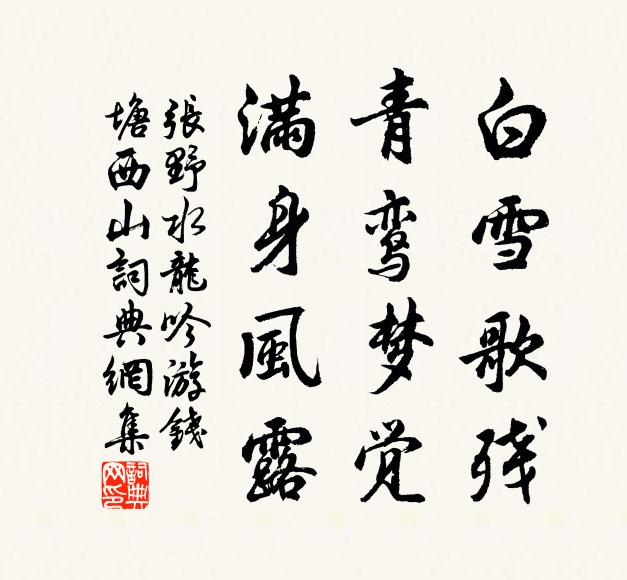 白雪歌残
青鸾梦觉
满身風露
張野水龍吟游錢
塘西山詞典網集
詞典网印